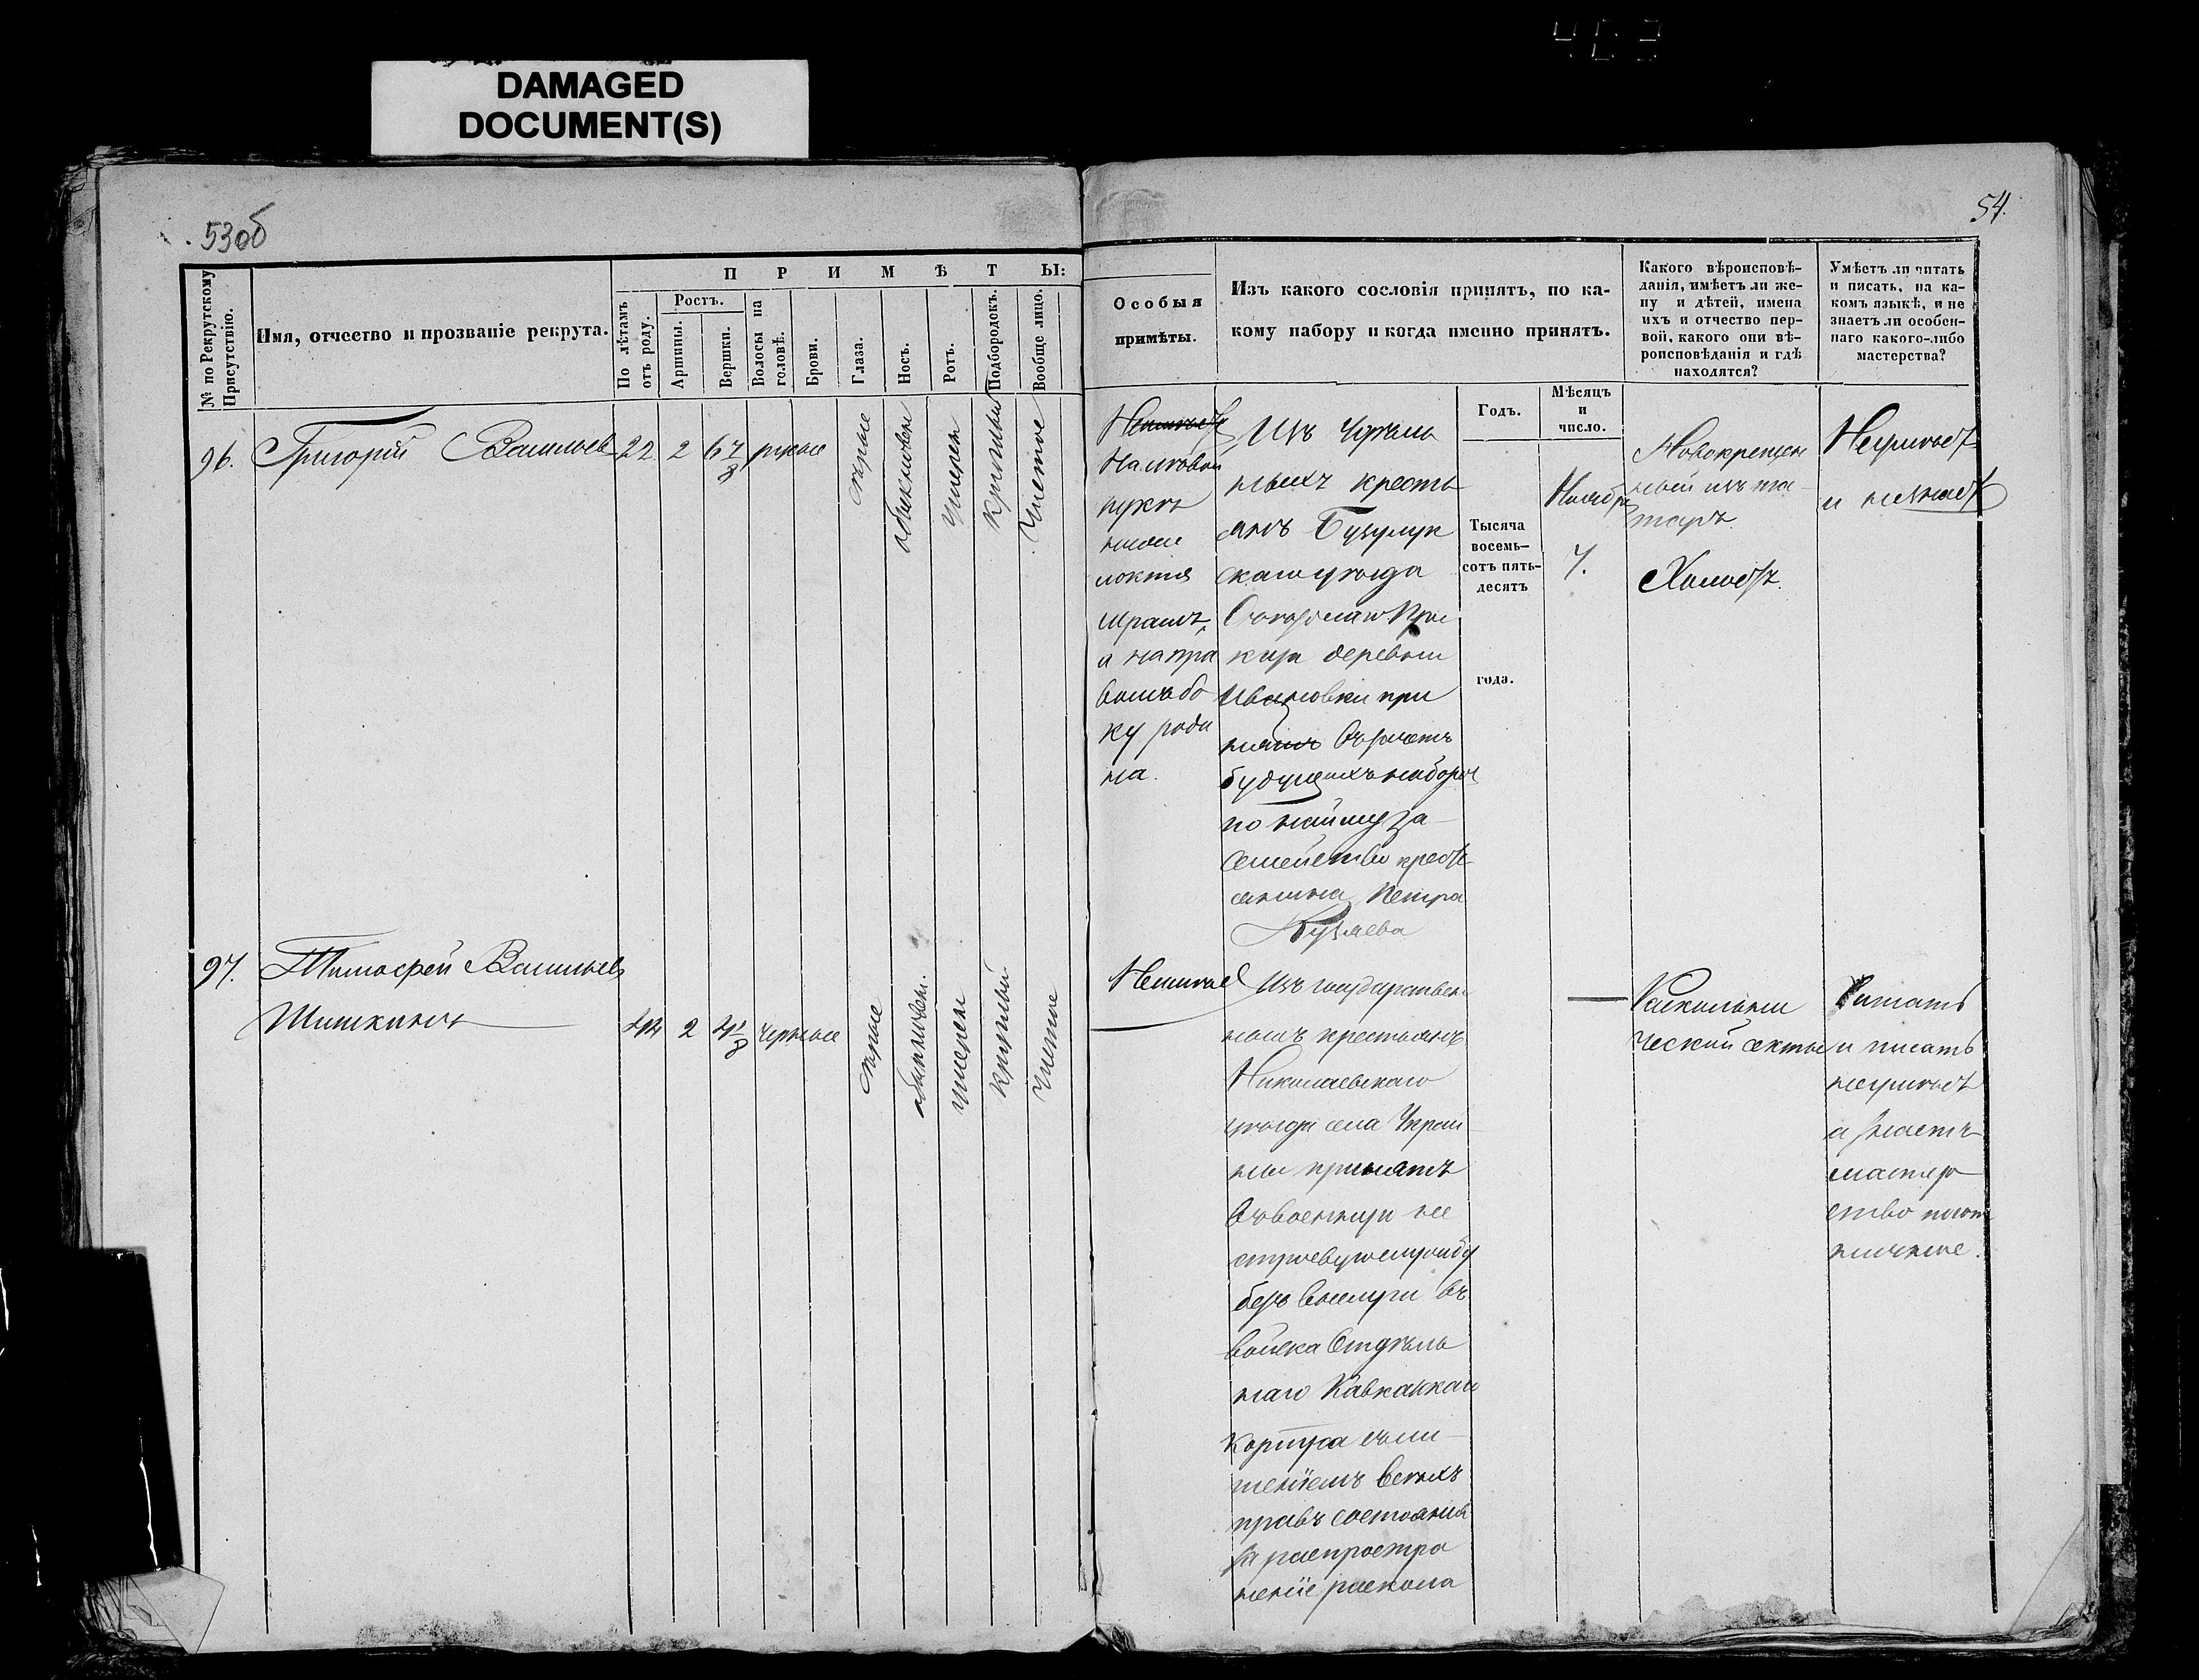 DAMAGED
DOCUMENT(S)
53об
54.
№ по Рекрутскому
Присутствію.
Имя, отчество и прозваніе рекрута.
ПРИМѢТЫ:
По лѣтамъ
отъ роду.
Ростъ.
Аршины.
Вершки.
Волосы на
головѣ.
Брови.
Глаза.
Носъ.
Ротъ.
Подбородокъ.
Вообще лицо.
Особыя
примѣты.
Изъ какого сословія принятъ, по ка-
кому набору и когда именно принятъ.
Годъ.
Мѣсяцъ
и
число.
Какого вѣроисповѣ-
данія, имѣетъ ли же-
ну и дѣтей, имена
ихъ и отчество пер-
вой, какого они вѣ-
роисповѣданія и гдѣ
находятся?
Умѣетъ ли читать
и писать, на ка-
комъ языкѣ, и не
знаетъ ли особен-
наго какого-либо
мастерства?
96.
Григорій Васильевъ
22
2
6 7/8
русые
сѣрые
обыкновен
умерен
круглый
Чистое
На лѣвой
рукѣ
ниже
локтя
шрамъ,
и на пра
вомъ бо
ку роди
на.
Изъ Удѣль
ныхъ кресть
янъ Бузулук
скаго уѣзда
деревни
Ивановки при
нятъ въ зачетъ
будущихъ наборовъ
по найму за
семейство кресть
янина Петра
Тысяча
восемь-
сотъ пять-
десятъ
года.
Ноября
7.
Новокрещен
ный изъ та
таръ.
Холостъ.
Неумѣетъ
и незнаетъ
97.
Тимофей Васильевъ
Шишкинъ
44
2
4 1/8
Черные
сѣрые
обыкновен.
умерен
круглый
чистое
Неимѣе
Изъ государствен
ныхъ крестьянъ
Николаевскаго
уѣзда села
принятъ
въ военную не
строевую службу
безъ выслуги въ
войска Отдѣль
наго Кавказкаго
Корпуса съ ли
шеніемъ всѣхъ
правъ состоянія
за распростра
неніе раскола
Раскольни
ческой секты
Читать
и писать
неумѣетъ
а знаетъ
мастер
ство плот
ничное.